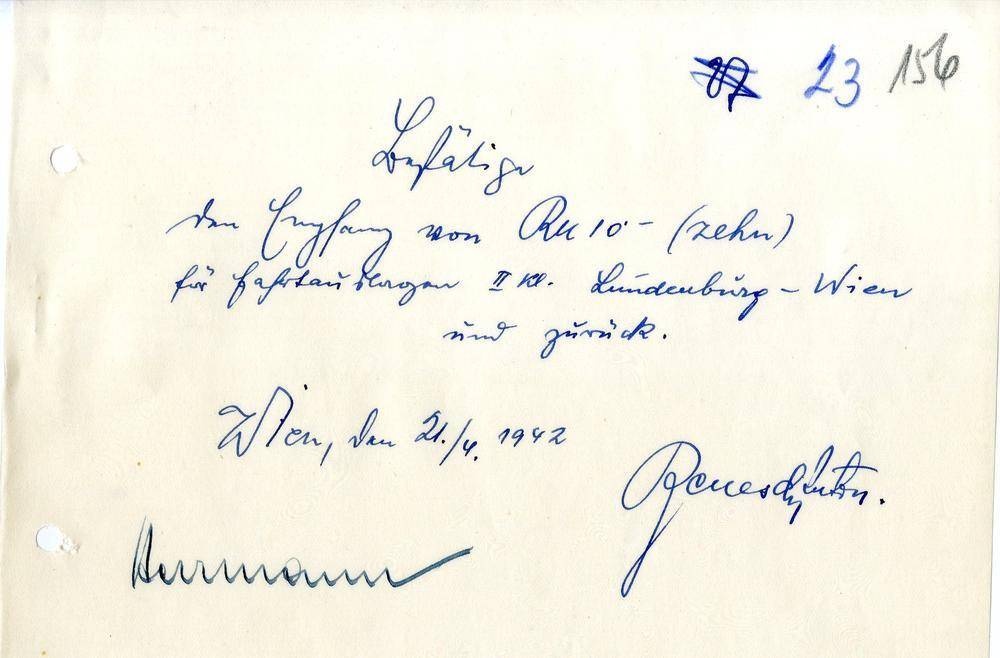 23 156
Bestätige
den Empfang von RM 10- (zehn)
für Fahrtauslagen II Kl. Lundenburg - Wien
und zurück.
Wien, den 21./4. 1942
Benesch Anton.
Herrmann